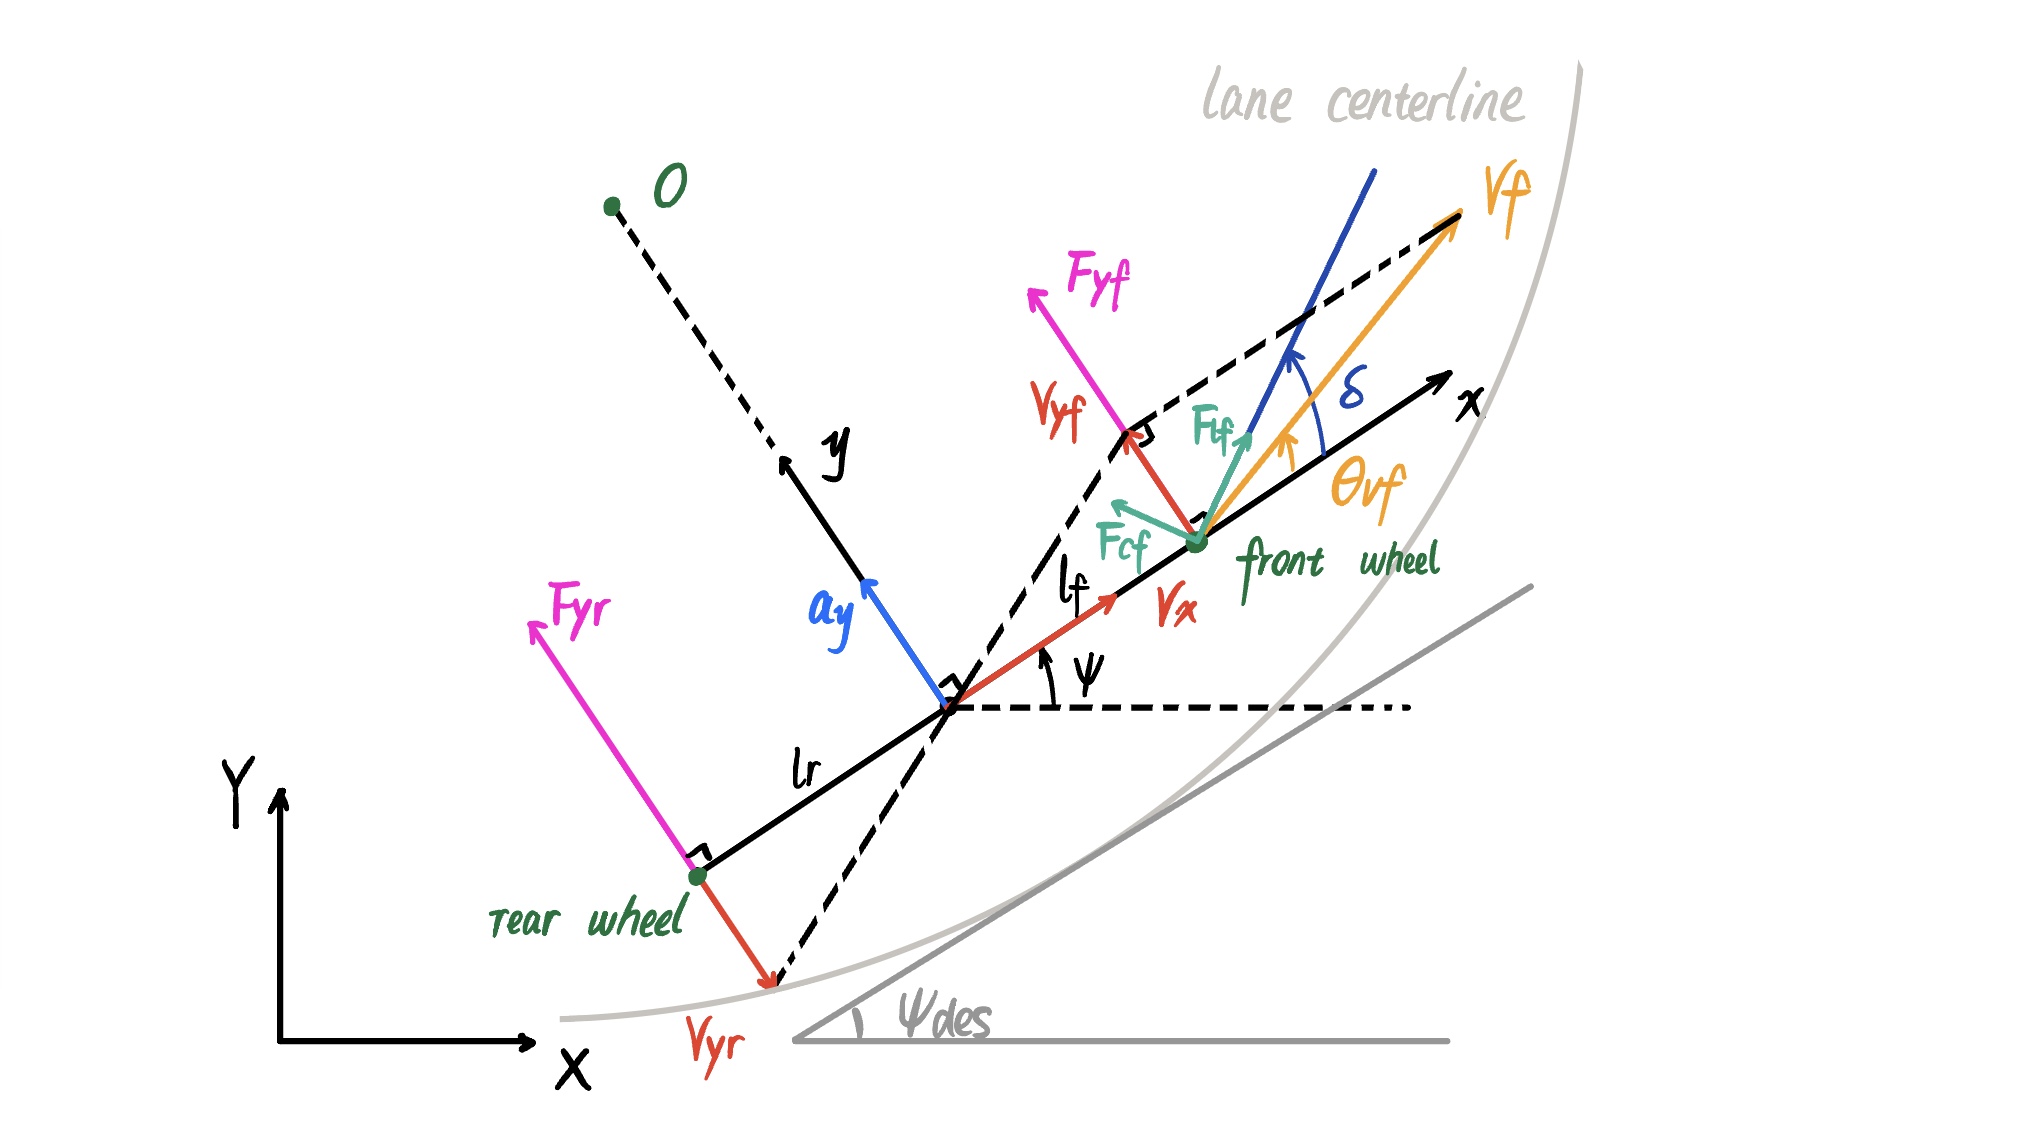 lane centerline
O
Vf
Fyf
y
Vyf
Flf
δ
x
θvf
Fcf
front wheel
lf
Vx
Fyr
ay
ψ
lr
Y
rear wheel
ψdes
Vyr
X